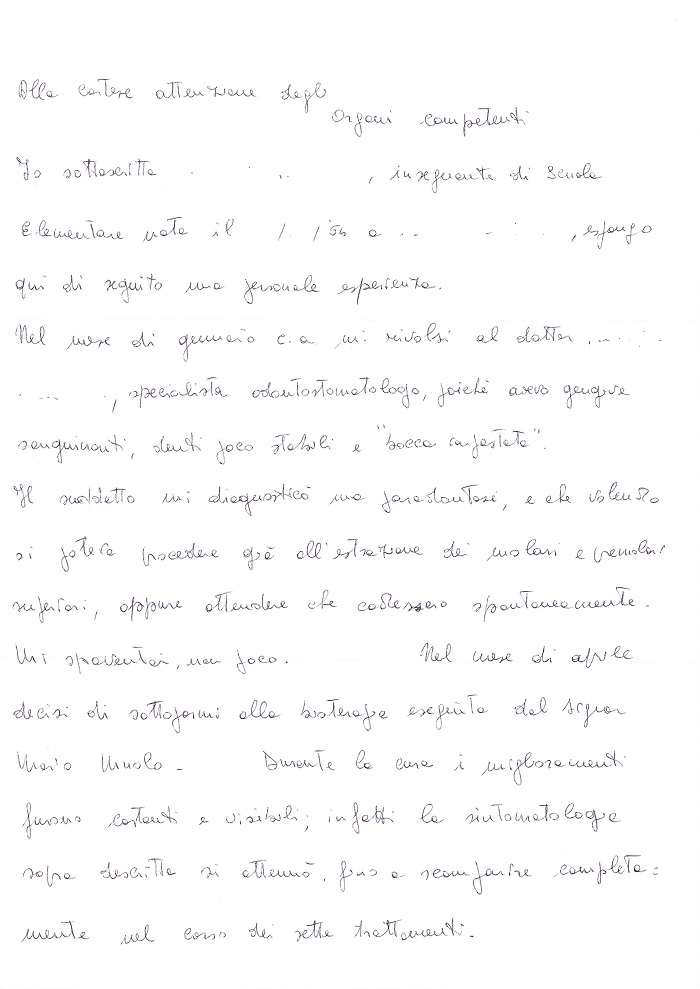 Alla cortese attenzione degli
Organi competenti
Io sottoscritta , insegnante di Scuola
Elementare nata il /. /'54 a , espongo
qui di seguito una personale esperienza.
Nel mese di gennaio c.a. mi rivolsi al dottor
, specialista odontostomatologo, poichè avevo gengive
sanguinanti, denti poco stabili e "bocca impastata".
Il suddetto mi diagnosticò una parodontosi, e che volendo
si poteva procedere già all'estrazione dei molari e premolari
superiori, oppure attendere che cadessero spontaneamente.
Mi spaventai, non poco. Nel mese di aprile
decisi di sottopormi alla bioterapia eseguita dal signor
Mario -
Durante la cura i miglioramenti
furono costanti e visibili; infatti la sintomatologia
sopra descritta si attenuò, fino a scomparire completa=
mente nel corso dei sette trattamenti.